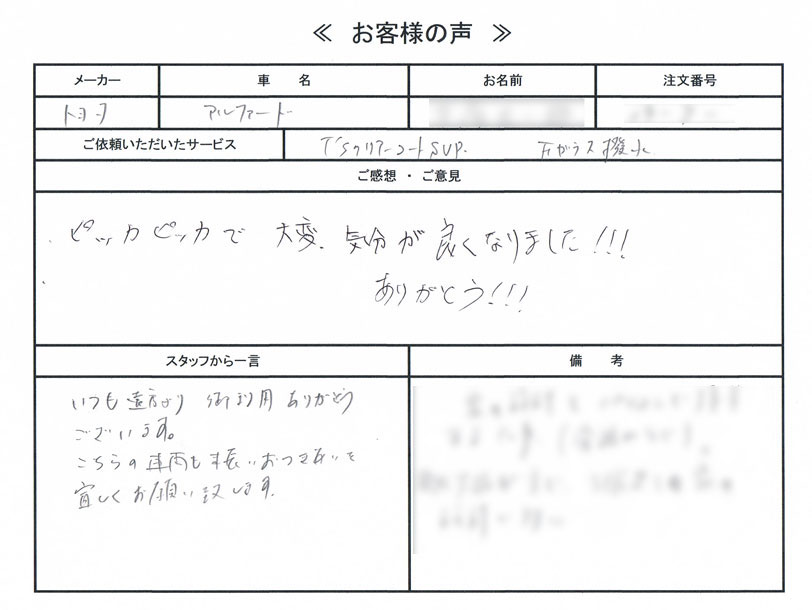 ≪ お客様の声 ≫
メーカー 車 名 お名前 注文番号
トヨタ アルファード
ご依頼いただいたサービス T'SクリアーコートSUP. 万ガラス撥水
ご感想 ・ ご意見
ピッカピッカで 大変、気分が良くなりました!!!
ありがとう!!!
スタッフから一言 備 考
いつも遠方より 御利用 ありがとう
ございます。
こちらの車両も末長いおつき合いを
宜しくお願い致します。